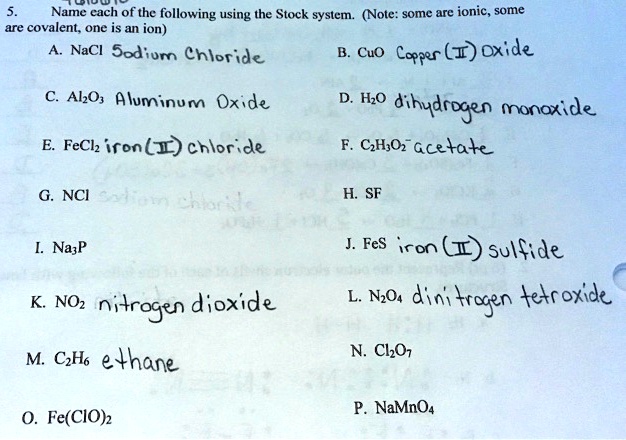 5. Name each of the following using the Stock system. (Note: some are ionic, some
are covalent, one is an ion)
A. NaCl Sodium Chloride B. CuO Copper (II) Oxide
C. Al2O3 Aluminum Oxide D. H2O dihydrogen monoxide
E. FeCl2 iron (II) chloride F. C2H3O2⁻ acetate
G. NCl H. SF
I. Na3P J. FeS iron (II) sulfide
K. NO2 nitrogen dioxide L. N2O4 dinitrogen tetroxide
M. C2H6 ethane N. Cl2O7
O. Fe(ClO)2 P. NaMnO4